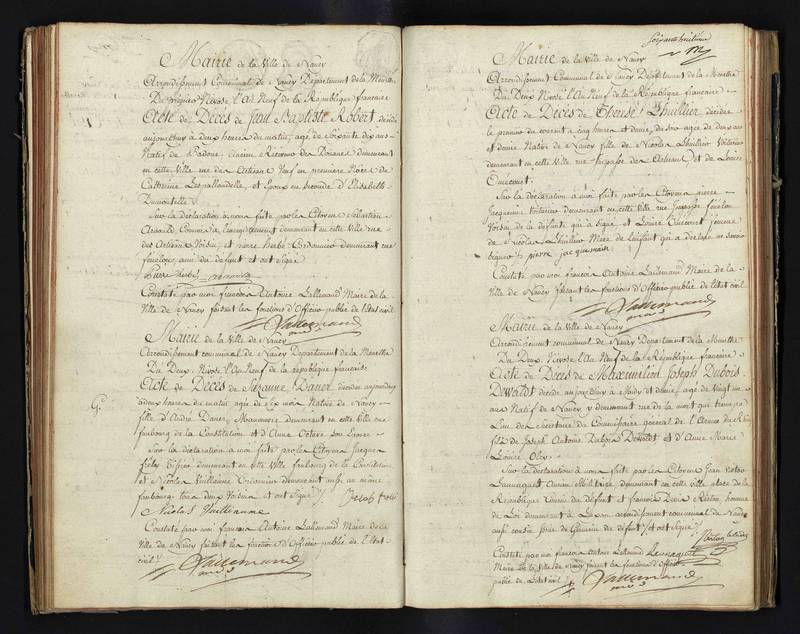 Mairie de la Ville de Nancy
Arrondissement Communal de Nancy Département de la Meurthe
Du premier Nivose l'An Neuf de la République française
Acte de Décès de Jean Baptiste Robert décédé
aujourd'huy à deux heures du matin, agé de soixante dix ans
Natif de Padoue, ancien Receveur des Douanes demeurant
en cette Ville rue des Artisans Veuf en première Noce de
Catherine et Epoux en seconde d'Elisabeth
Sur la déclaration à moi faite par les Citoyens Sébastien
demeurant en cette Ville rue
des Artisans Voisin, et pierre herbé Cordonnier demeurant rue
fenelon, ami du défunt et ont signé
pierre herbé
Constaté par moi françois Antoine Lallemand Maire de la
Ville de Nancy faisant les fonctions d'Officier public de l'état civil
Lallemand
Mairie de la Ville de Nancy
Arrondissement communal de Nancy Département de la Meurthe
Du Deux Nivose l'An Neuf de la république française
Acte de Décès de Suzanne Daner décédée aujourd'huy
à deux heures du matin agée de six mois Native de Nancy
G.
fille d'André Daner, demeurant en cette Ville
faubourg de la Constitution et d'Anne son Epouse
Sur la déclaration à moi faite par les Citoyens Jacques
demeurant en cette Ville faubourg de la Constitution
et Nicolas Vuillaume Cordonnier demeurant
faubourg tous deux Voisins et ont signé
Nicolas Vuillaume
Constaté par moi françois Antoine Lallemand Maire de la
Ville de Nancy faisant les fonctions d'Officier public de l'état
civil
Lallemand
Soixante huitième
Mairie de la Ville de Nancy
Arrondissement Communal de Nancy Département de la Meurthe
Du Deux Nivose l'An Neuf de la République française
Acte de Décès de Thérèse Lhuillier décédée
le premier du courant à cinq heures et demie, du soir agée de deux ans
et demie Native de Nancy fille de Nicolas Lhuillier Voiturier
demeurant en cette Ville rue des Artisans, et de Louise
Sur la déclaration à moi faite par les Citoyens pierre
Jacquemin Voiturier demeurant en cette Ville rue fenelon
Voisin de la défunte qui a signé et Louise femme
de Nicolas Lhuillier Mère de l'enfant qui a déclaré ne savoir
pierre jacquemin
Constaté par moi françois Antoine Lallemand Maire de la
Ville de Nancy faisant les fonctions d'Officier public de l'état civil
Lallemand
Mairie de la Ville de Nancy
Arrondissement communal de Nancy Département de la Meurthe
Du Deux Nivose l'An Neuf de la République française
Acte de Décès de Maximilien Joseph Dubois
Dewaldt décédé aujourd'huy à Midy et demie, agé de Vingt un
ans Natif de Nancy y demeurant rue de
L'un des Secretaires du Commissaire général de l'Armée du Rhin
fils de Joseph Antoine Dubois Dewaldt et d'Anne Marie
Louise
Sur la déclaration à moi faite par les Citoyens Jean
demeurant en cette Ville place de la
République Cousin du défunt et françois homme
de Loi demeurant à arrondissement communal de Nancy
aussi Cousin du défunt et ont signé
Constaté par moi françois Antoine Lallemand
Maire de la Ville de Nancy faisant les fonctions d'Officier
public de l'état civil
Lallemand